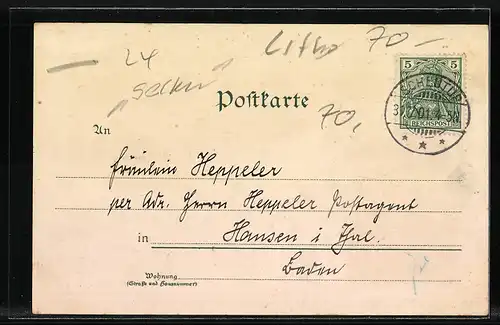 24 Litho 70,-
Postkarte
70,
5 5
REICHSPOST
An
Fräulein Heppeler
per Adr. Herrn Heppeler Postagent
in Hausen i Thal.
Baden
Wohnung
(Straße und Hausnummer)